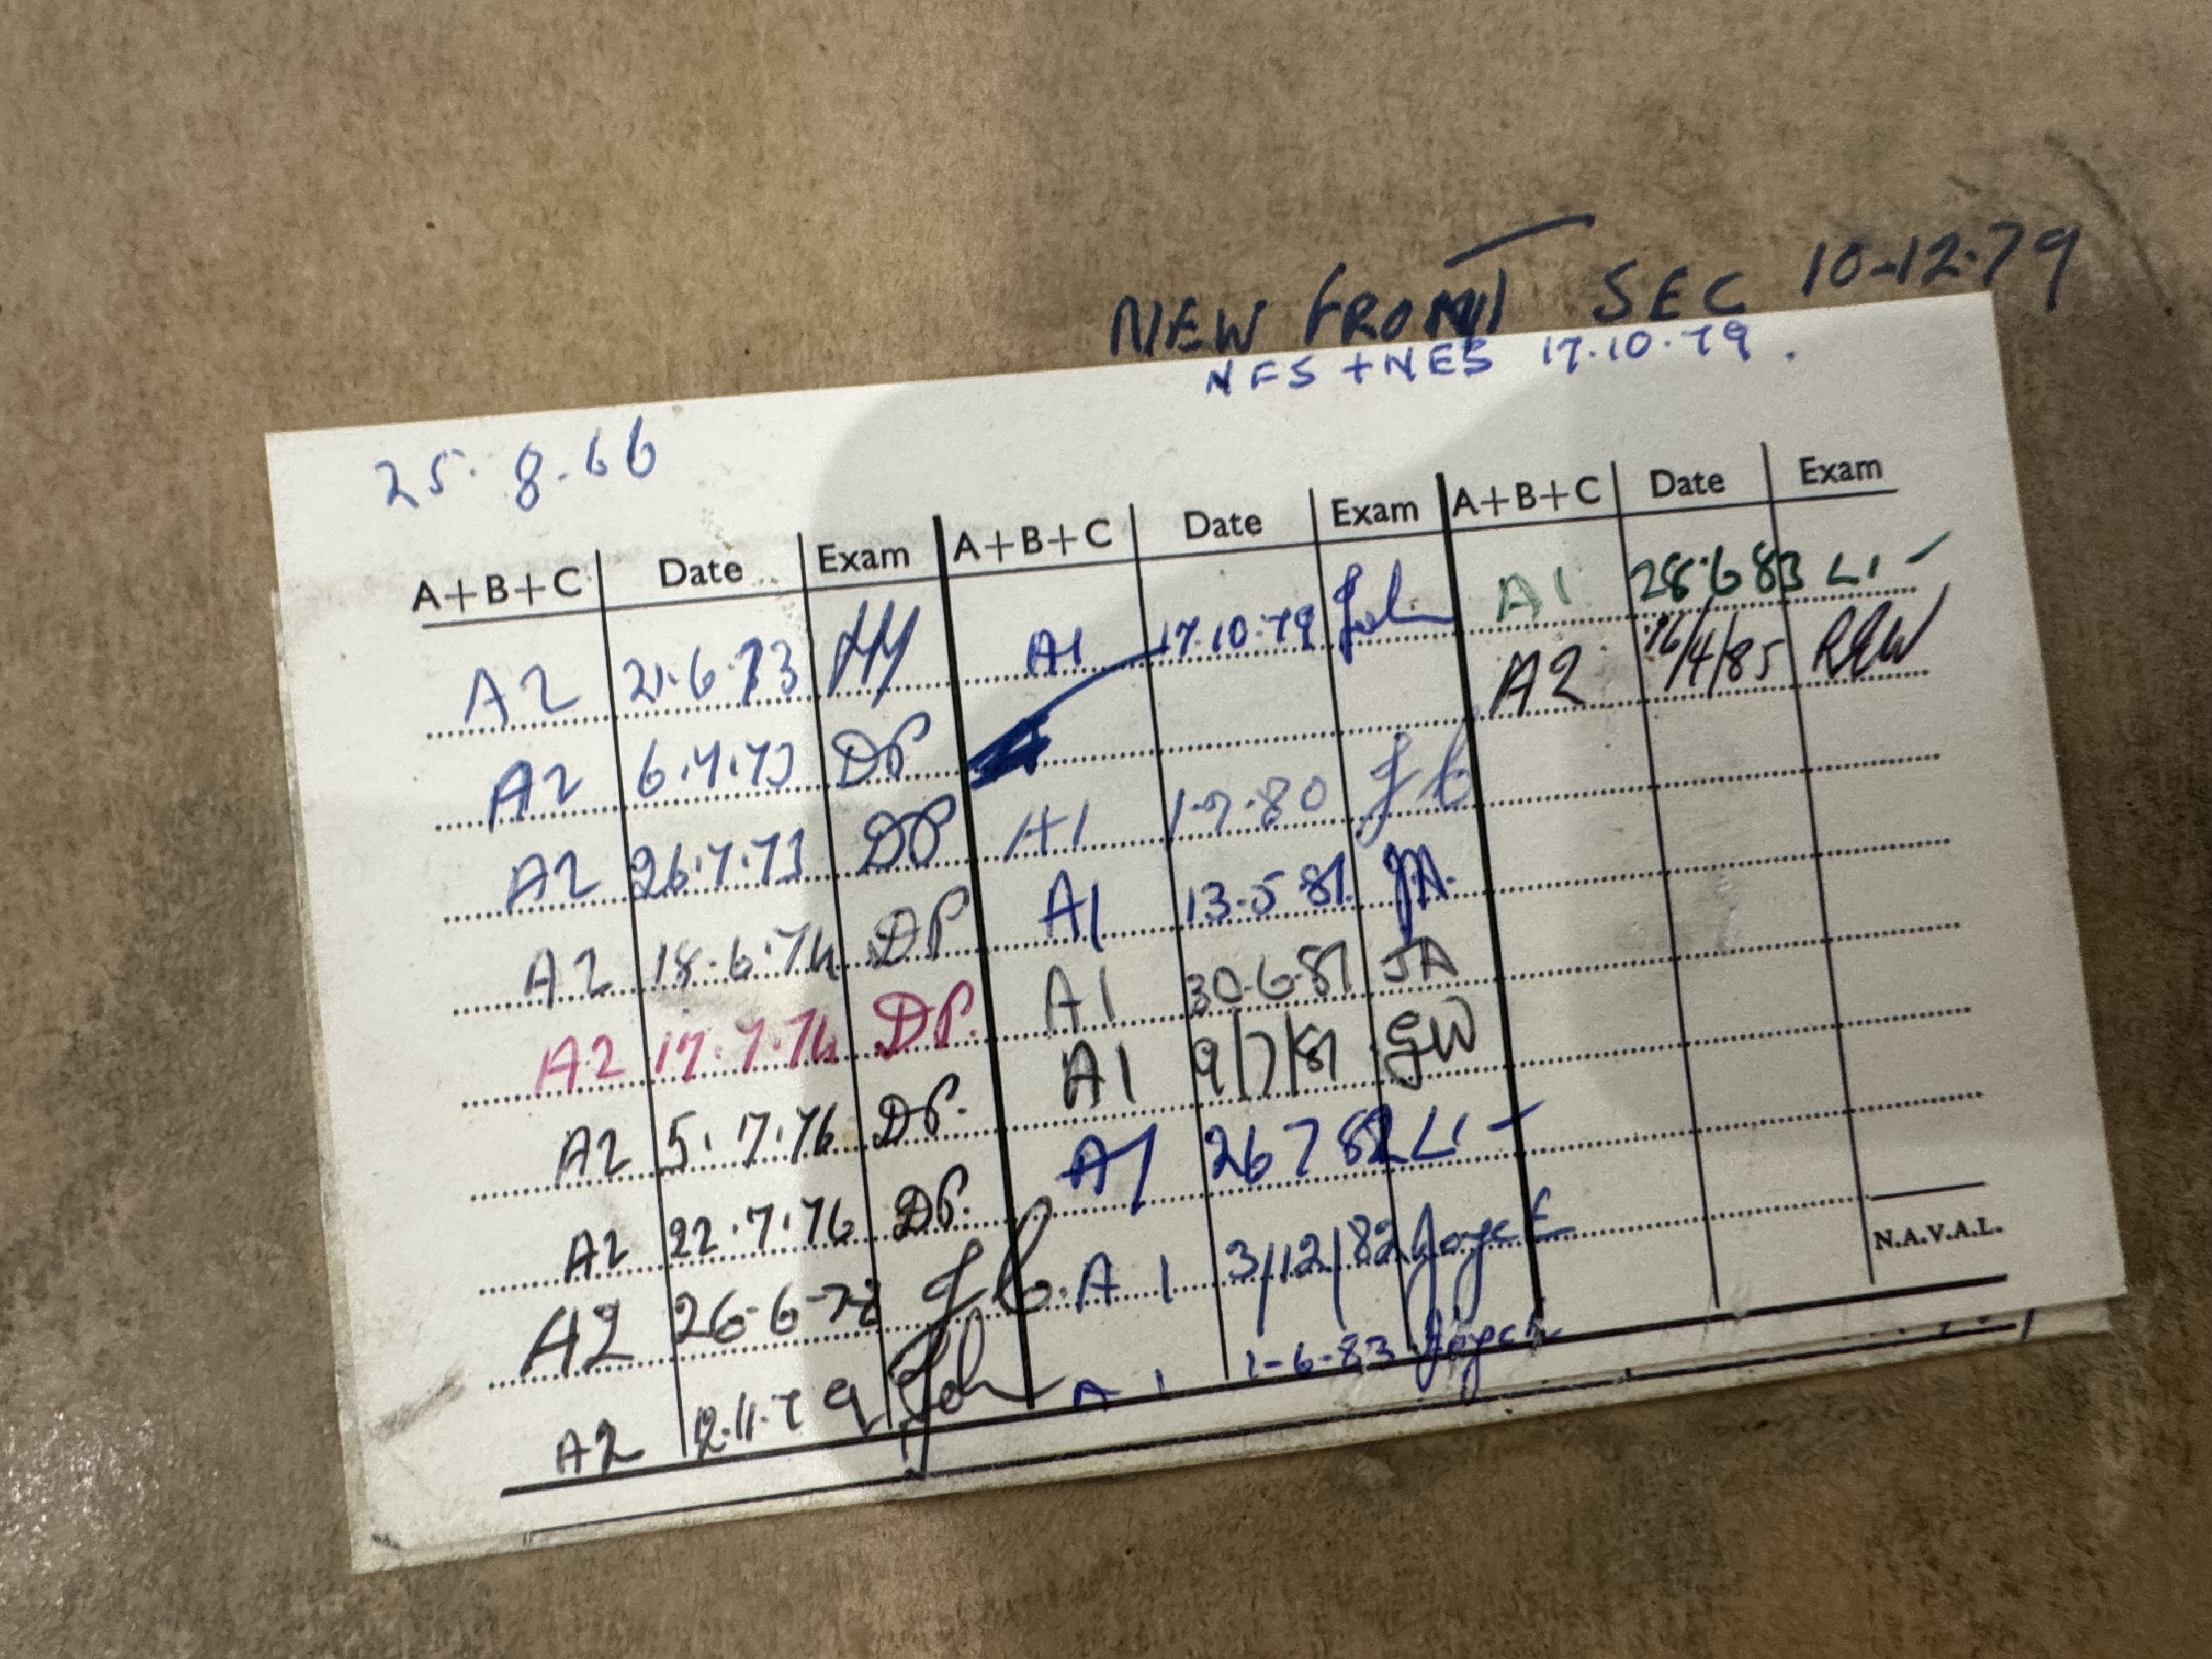 NEW FRONT SEC 10-12-79
NFS + NES 17.10.79.
25.8.66
A+B+C Date Exam A+B+C Date Exam A+B+C Date Exam
A2 21.6.73
A2 6.7.73 DP
A2 26.7.73 DP
A2 18.6.74 DP
A2 17.7.74 DP.
A2 5.7.76 DP.
A2 22.7.76 DP.
A2 26-6-78
A2 12.11.79
A1 17.10.79
A1 1.7.80
A1 13.5.81 JA.
A1 30.6.81 JA
A1 9/7/81 GW
A1 26 7 82
A1 3/12/82 Joyce
A1 1-6-83 Joyce
A1 28.6 83
A2 16/4/85 REW
N.A.V.A.L.